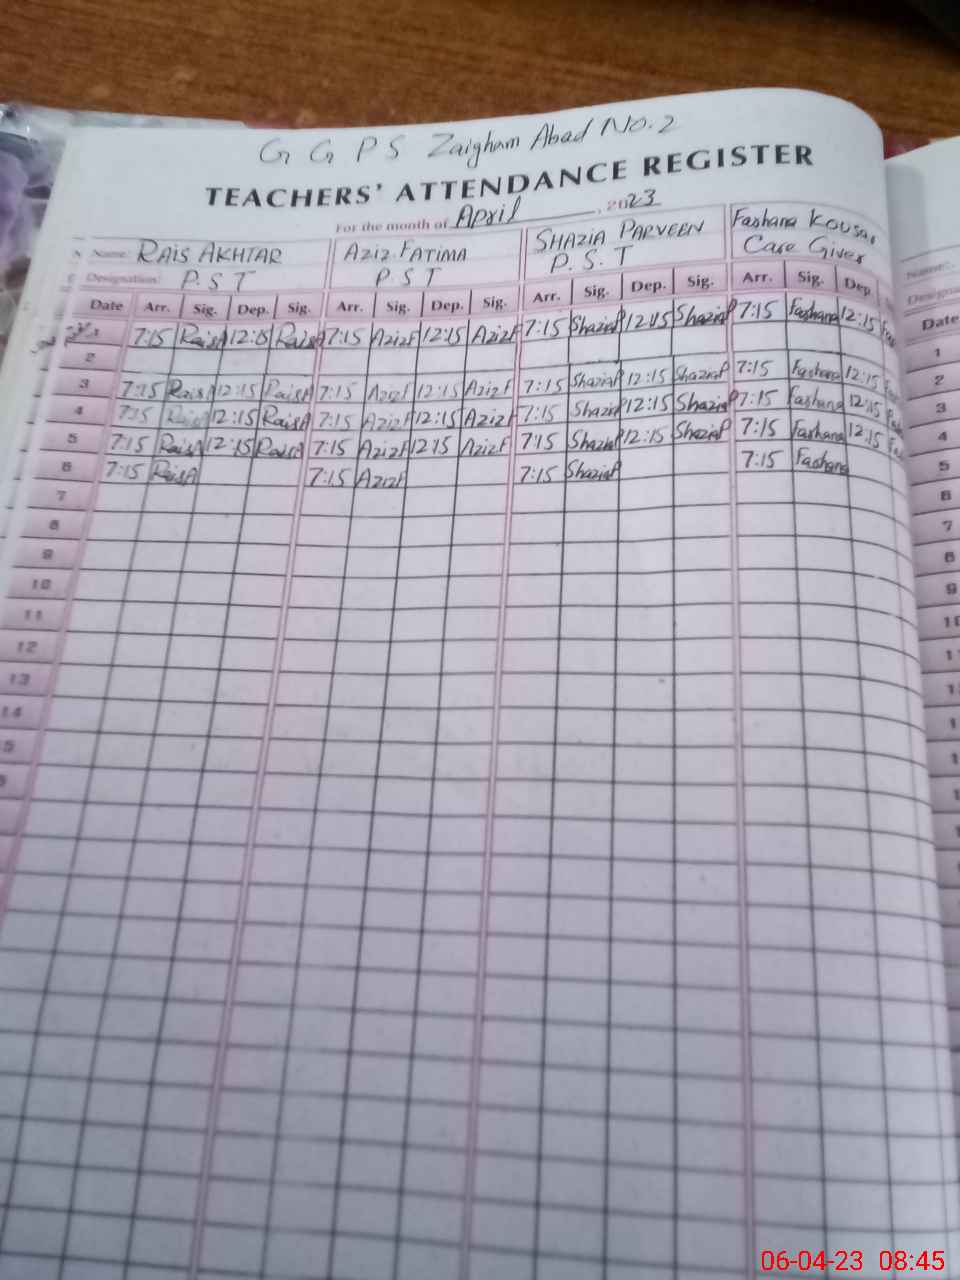 G G P S Zaigham Abad No. 2
TEACHERS' ATTENDANCE REGISTER
For the month of April, 2023
Name: RAIS AKHTAR AZIZ FATIMA SHAZIA PARVEEN Fashana Kousar
Designation: P.S T P.S T P.S.T Care Giver
Date Arr. Sig. Dep. Sig. Arr. Sig. Dep. Sig. Arr. Sig. Dep. Sig. Arr. Sig. Dep.
1 7:15 RaisA 12:15 RaisA 7:15 AzizF 12:15 AzizF 7:15 ShaziaP 12:15 ShaziaP 7:15 Fashana 12:15
2
3 7:15 RaisA 12:15 RaisA 7:15 AzizF 12:15 AzizF 7:15 ShaziaP 12:15 ShaziaP 7:15 Fashana 12:15
4 7:15 RaisA 12:15 RaisA 7:15 AzizF 12:15 AzizF 7:15 ShaziaP 12:15 ShaziaP 7:15 Fashana 12:15
5 7:15 RaisA 12:15 RaisA 7:15 AzizF 12:15 AzizF 7:15 ShaziaP 12:15 ShaziaP 7:15 Fashana 12:15
6 7:15 RaisA 7:15 AzizF 7:15 ShaziaP 7:15 Fashana
7
8
9
10
11
12
13
14
5
Name:
Date
1
2
3
4
5
6
7
8
9
06-04-23 08:45